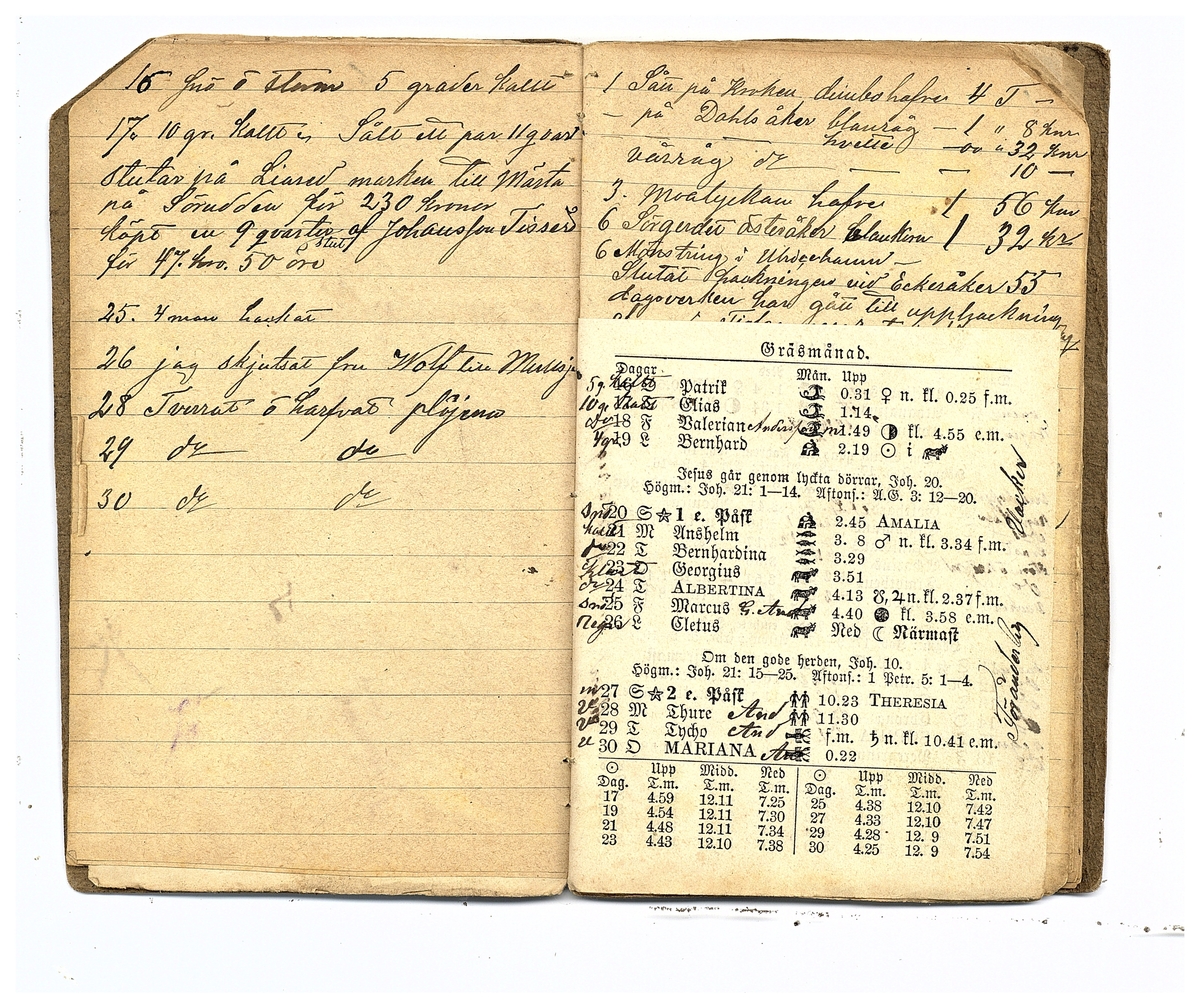 16 Snö ö storm 5 grader kallt
17. 10 gr. kallt Sålt ett par 11 qvar
stutar på Liared marken till Märta
på Sörudden för 230 kronor
köpt en 9 qvarter stut af Johansson Tisser
för 47. kro. 50 öre
25. 4 man hackat
26 jag skjutsat fru Wolf till
28 Tverrat ö harfvat plöjena
29 do do
30 do do
1 Sått på Kroken dimbohafre 4 T —
— på Dahlsåker blanråg — 1 " 8 knr
hvette — 00 " 32 knr
vårråg do — — 10 —
3. Moalyckan hafre 1 56 knr
6 Sörgerdet österåker blankorn 1 32 kr
6 Mönstring i Ulricehamn —
Slutat hackningen vid Eckeråker 55
dagsverken har gått till upphackning
Gräsmånad.
Dagar Mån. Upp
5 gr kallt 16 O Patrik 0.31 ♀ n. kl. 0.25 f.m.
10 gr kallt 17 T Elias 1.14
do 18 F Valerian 1.49 kl. 4.55 e.m.
4 gr 19 L Bernhard 2.19 ☉ i
Jesus går genom lyckta dörrar, Joh. 20.
Högm.: Joh. 21: 1—14. Aftons.: A.G. 3: 12—20.
snö 20 S ☆ 1 e. Påsk 2.45 AMALIA
21 M Anshelm 3. 8 ♂ n. kl. 3.34 f.m.
22 T Bernhardina 3.29
23 O Georgius 3.51
do 24 T ALBERTINA 4.13 ☿, ♃ n. kl. 2.37 f.m.
snö 25 F Marcus 4.40 kl. 3.58 e.m.
Regn 26 L Cletus Ned ☾ Närmast
Om den gode herden, Joh. 10.
Högm.: Joh. 21: 15—25. Aftons.: 1 Petr. 5: 1—4.
27 S ☆ 2 e. Påsk 10.23 THERESIA
28 M Thure And 11.30
29 T Tycho And f.m. ♄ n. kl. 10.41 e.m.
30 O MARIANA 0.22
Vacker
Föränderlig
☉ Upp Midd. Ned ☉ Upp Midd. Ned
Dag. T.m. T.m. T.m. Dag. T.m. T.m. T.m.
17 4.59 12.11 7.25 25 4.38 12.10 7.42
19 4.54 12.11 7.30 27 4.33 12.10 7.47
21 4.48 12.11 7.34 29 4.28 12. 9 7.51
23 4.43 12.10 7.38 30 4.25 12. 9 7.54